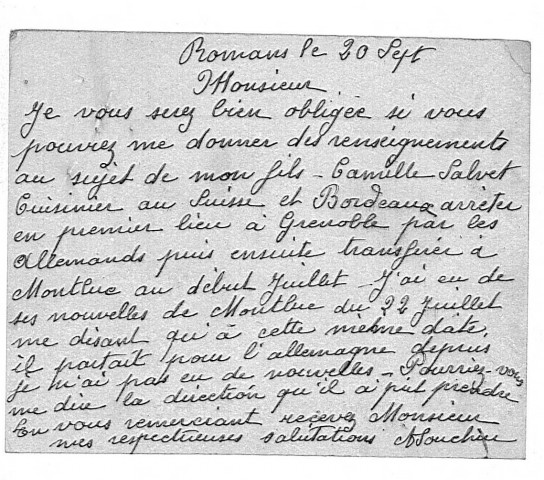 Romans le 20 Sept
Monsieur
Je vous serez bien obligée si vous
pouvriez me donner des renseignements
au sujet de mon fils - Camille Salvet
Cuisinier au Suisse et Bordeaux arrêter
en premier lieu à Grenoble par les
Allemands puis ensuite transférer à
Montluc au début Juillet - J'ai eu de
ses nouvelles de Montluc du 22 Juillet
me disant qu'à cette même date,
il partait pour l'allemagne depuis
je n'ai pas eu de nouvelles - Pourriez-vous
me dire la direction qu'il a pût prendre
En vous remerciant recevez Monsieur
mes respectueuses salutations